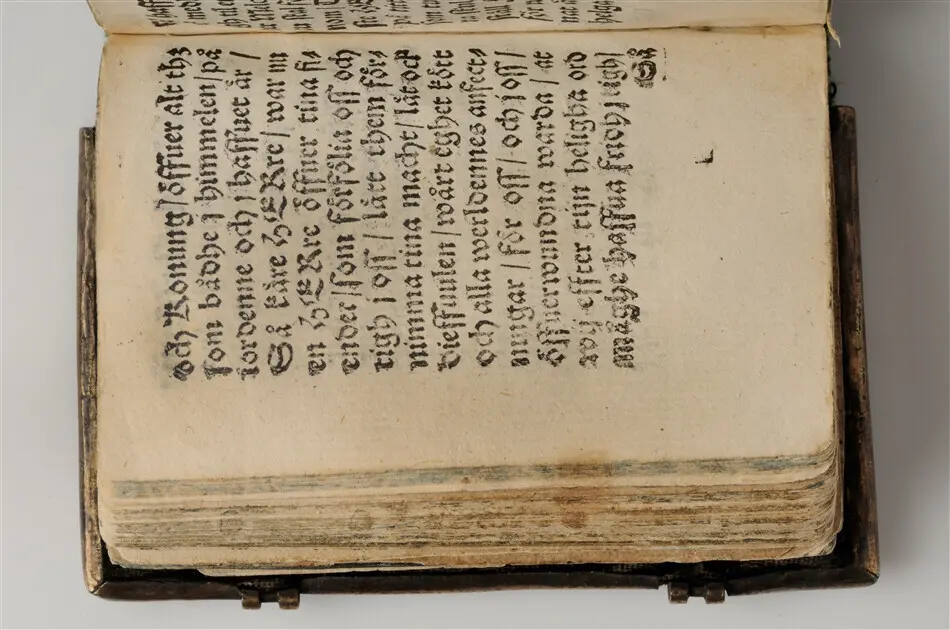 och Konung / öffuer alt thz
som bådhe j himmelen / på
iordenne och j haffuet är /
Så käre HERre / war nu
en HERre öffuer tina fi⸗
ender / som förfölia oss och
tigh j oss / lätt them för⸗
nimma tina macht / låt ock
dieffuulen / wårt eghet kött
och alla werldennes anfect⸗
ningar / för oss / och j oss /
öffuerwundna warda / at
wij effter tijn heligha ord
måghe haffua
Så